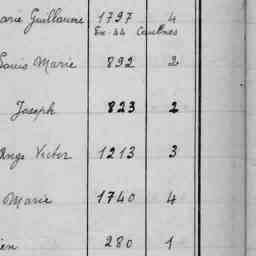 arie Guillaume 1797 4
Ex-44
Louis Marie 892 2
Joseph 823 2
Ange Victor 1213 3
Marie 1740 4
ien 280 1